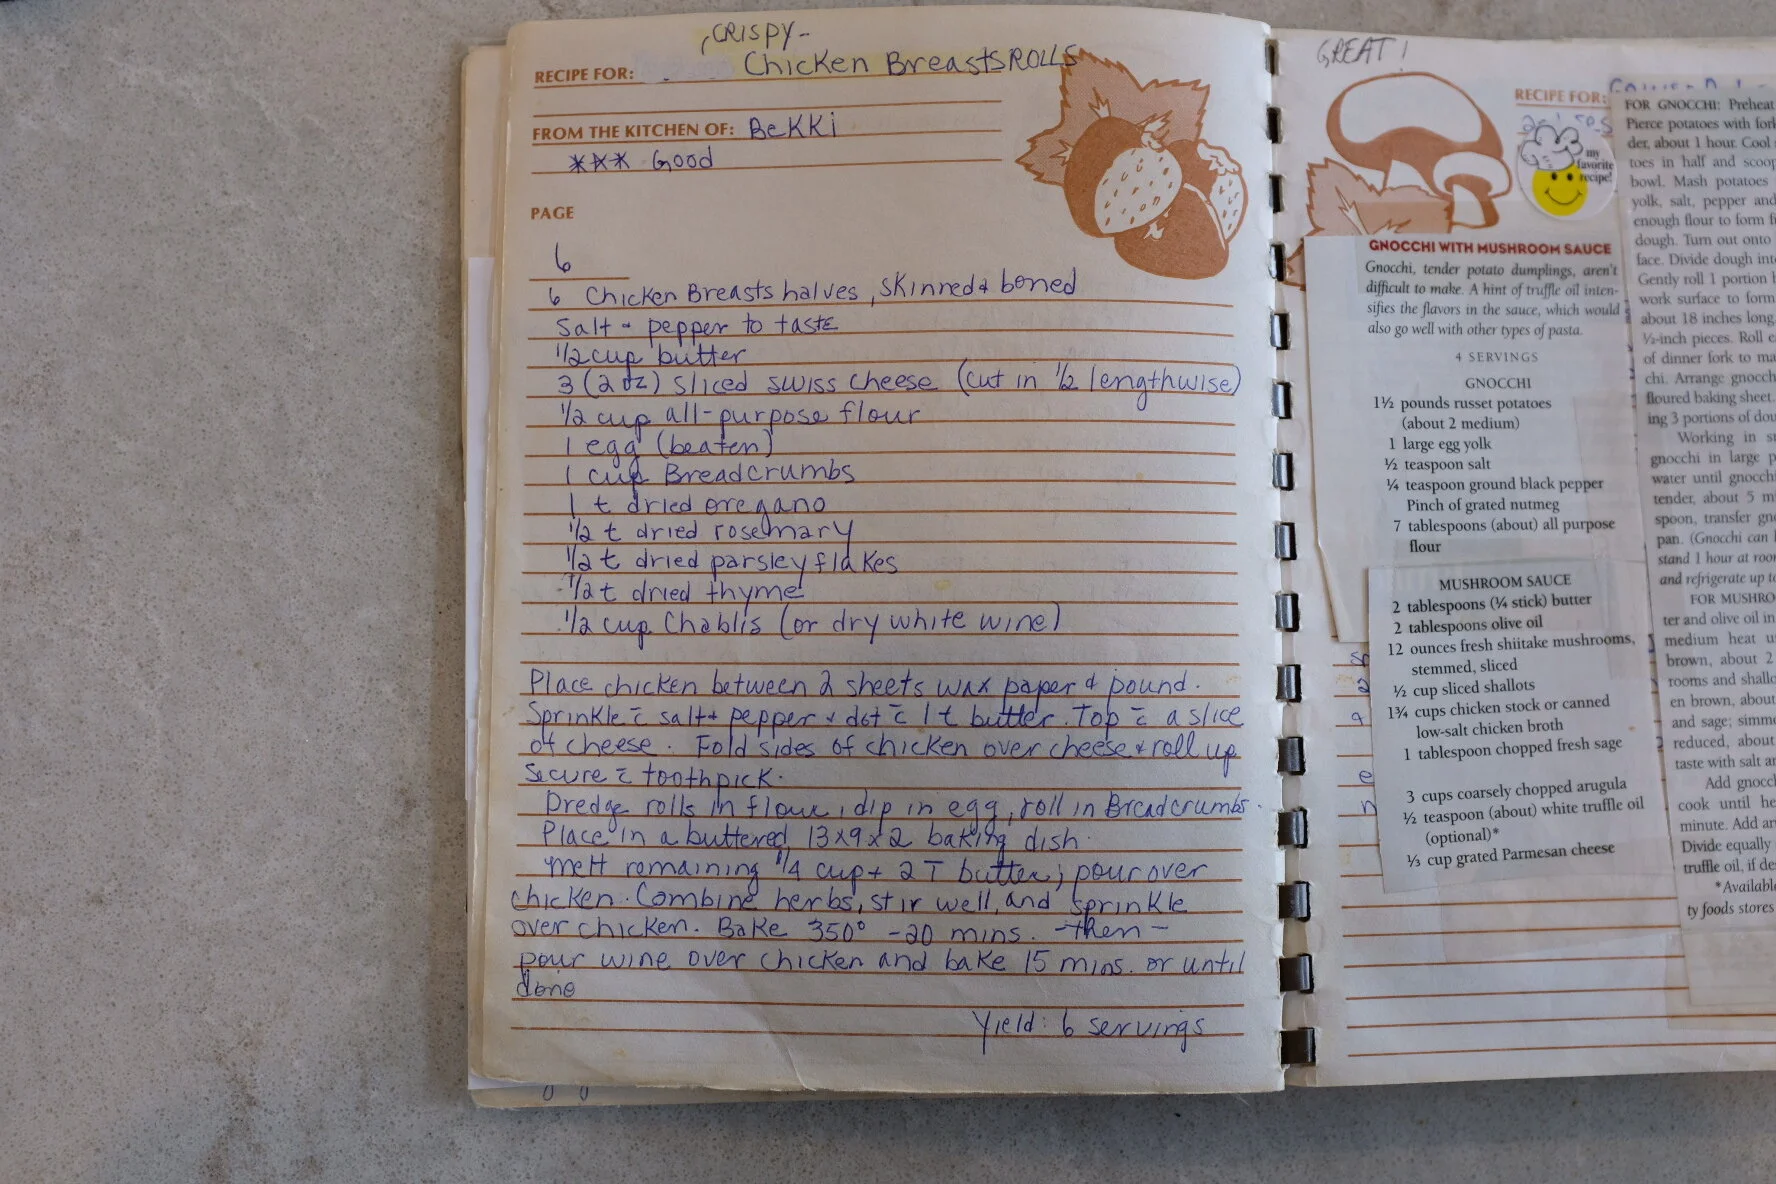 CRISPY-
RECIPE FOR: Chicken Breasts ROLLS
FROM THE KITCHEN OF: BeKKi
*** Good
PAGE
6
6 Chicken Breasts halves, skinned & boned
Salt & pepper to taste
1/2 cup butter
3 (2 oz) sliced swiss cheese (cut in 1/2 lengthwise)
1/2 cup all-purpose flour
1 egg (beaten)
1 cup Breadcrumbs
1 t dried oregano
1/2 t dried rosemary
1/2 t dried parsley flakes
1/2 t dried thyme
1/2 cup Chablis (or dry white wine)
Place chicken between 2 sheets wax paper & pound.
Sprinkle c̄ salt & pepper & dot c̄ 1 t butter. Top c̄ a slice
of cheese. Fold sides of chicken over cheese & roll up
secure c̄ toothpick.
Dredge rolls in flour, dip in egg, roll in Breadcrumbs.
Place in a buttered 13x9x2 baking dish.
Melt remaining 1/4 cup + 2 T butter; pour over
chicken. Combine herbs, stir well, and sprinkle
over chicken. Bake 350° - 20 mins. -then-
pour wine over chicken and bake 15 mins. or until
done
Yield: 6 servings
GREAT!
RECIPE FOR:
my
favorite
recipe!
GNOCCHI WITH MUSHROOM SAUCE
Gnocchi, tender potato dumplings, aren't
difficult to make. A hint of truffle oil inten-
sifies the flavors in the sauce, which would
also go well with other types of pasta.
4 SERVINGS
GNOCCHI
1½ pounds russet potatoes
(about 2 medium)
1 large egg yolk
½ teaspoon salt
¼ teaspoon ground black pepper
Pinch of grated nutmeg
7 tablespoons (about) all purpose
flour
MUSHROOM SAUCE
2 tablespoons (¼ stick) butter
2 tablespoons olive oil
12 ounces fresh shiitake mushrooms,
stemmed, sliced
½ cup sliced shallots
1¾ cups chicken stock or canned
low-salt chicken broth
1 tablespoon chopped fresh sage
3 cups coarsely chopped arugula
½ teaspoon (about) white truffle oil
(optional)*
⅓ cup grated Parmesan cheese
FOR GNOCCHI: Preheat
Pierce potatoes with fork
der, about 1 hour. Cool
toes in half and scoop
bowl. Mash potatoes
yolk, salt, pepper and
enough flour to form
dough. Turn out onto
face. Divide dough into
Gently roll 1 portion
work surface to form
about 18 inches long.
½-inch pieces. Roll
of dinner fork to
chi. Arrange gnocch
floured baking sheet.
ing 3 portions of
Working in
gnocchi in large
water until gnocchi
tender, about 5
spoon, transfer
pan. (Gnocchi can
stand 1 hour at
and refrigerate up to
FOR MUSHRO
ter and olive oil in
medium heat
brown, about 2
rooms and
en brown, about
and sage;
reduced, about
taste with salt
Add gnocch
cook until
minute. Add
Divide equally
truffle oil, if
*Available
ty foods stores